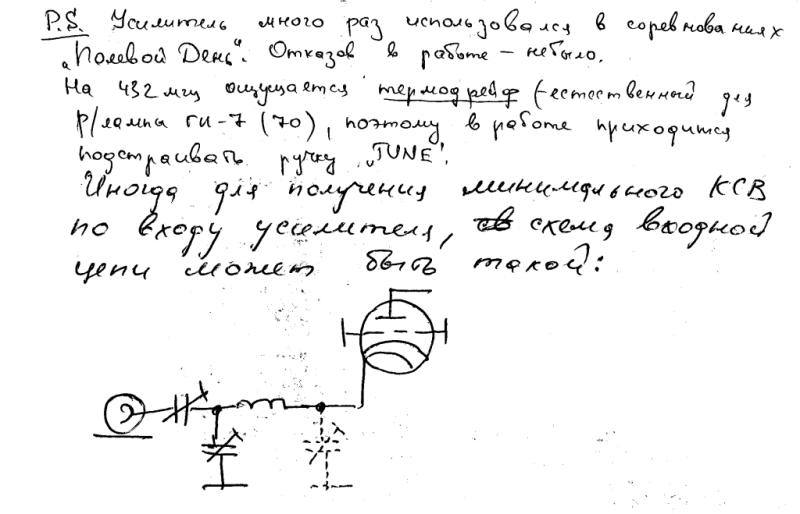 P.S. Усилитель много раз использовался в соревнованиях
„Полевой День". Отказов в работе – небыло.
На 432 мгц ощущается термодрейф (-естественный для
р/лампы ги-7 (70), поэтому в работе приходится
подстраивать ручку „TUNE".
Иногда для получения минимального КСВ
по входу усилителя, схема входной
цепи может быть такой: